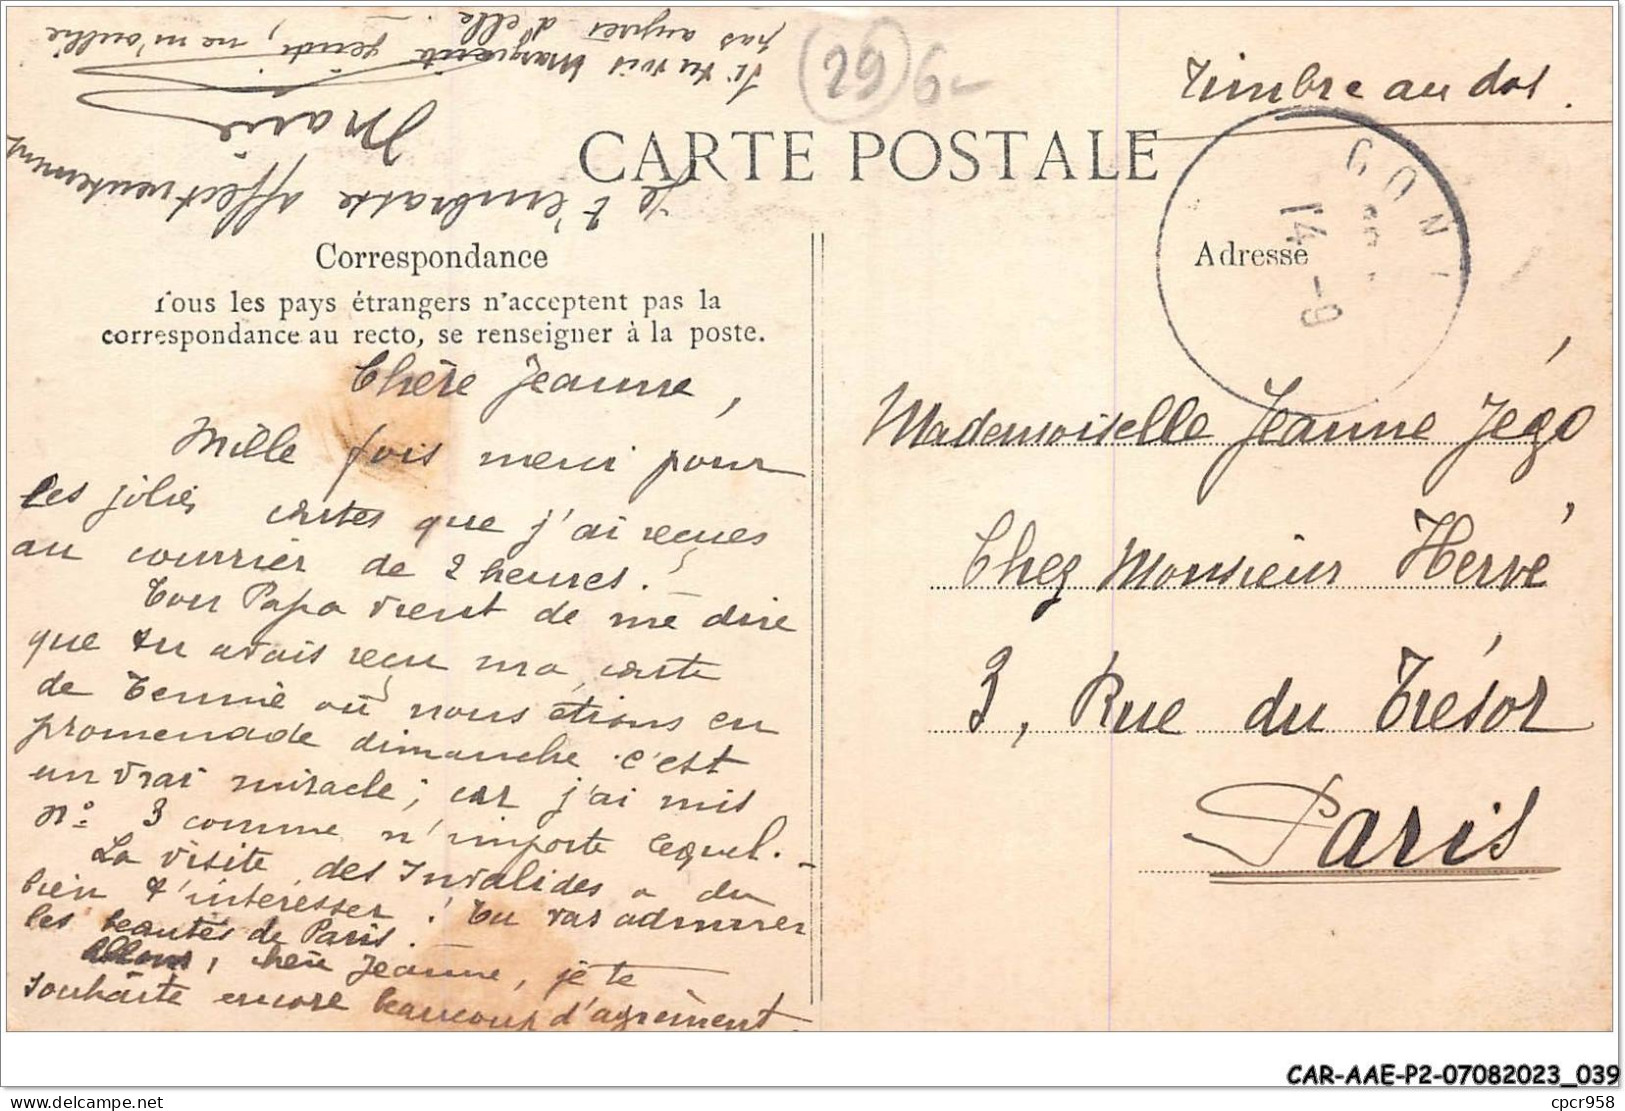 Timbre au dos.
29 6-
CARTE POSTALE
Correspondance
Tous les pays étrangers n'acceptent pas la
correspondance au recto, se renseigner à la poste.
Adresse
14 -9
Chère Jeanne,
Mille fois merci pour
les jolies cartes que j'ai reçues
au courrier de 2 heures.
Ton Papa vient de me dire
que tu avais reçu ma carte
de où nous étions en
promenade dimanche. c'est
un vrai miracle; car j'ai mis
n° 3 comme n'importe lequel. -
La visite des Invalides a du
bien t'intéresser! Tu vas admirer
les beautés de Paris.
Allons, chère Jeanne, je te
souhaite encore beaucoup d'agrément.
Je t'embrasse affectueusement
Marie
Si tu vois Marguerite jeudi, ne m'oublie
pas auprès d'elle.
Mademoiselle Jeanne Jégo
Chez Monsieur Hervé
3, Rue du Trésor
Paris
CAR-AAE-P2-07082023_039
delcampe.net
cpcr958